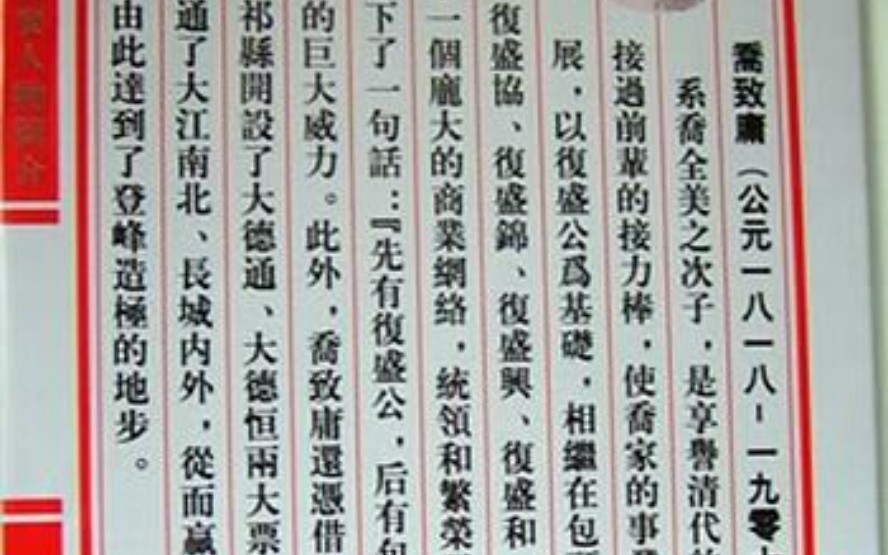 喬致庸（公元一八一八－一九零
系喬全美之次子，是享譽清代
接過前輩的接力棒，使喬家的事
展，以復盛公爲基礎，相繼在包
復盛協、復盛錦、復盛興、復盛和
一個龐大的商業網絡，統領和繁榮
下了一句話：『先有復盛公，后有包
的巨大威力。此外，喬致庸還憑借
祁縣開設了大德通、大德恒兩大票
通了大江南北、長城内外，從而贏
由此達到了登峰造極的地步。